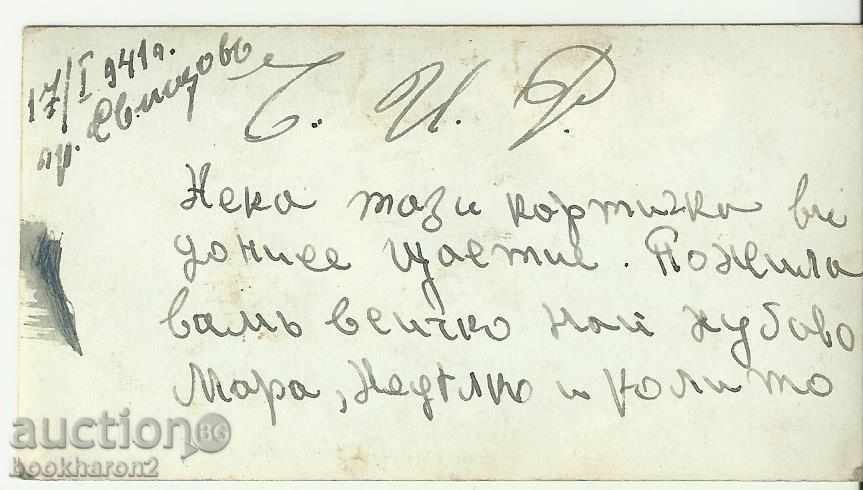 17/I 941 г.
гр. Свищовъ
Ч. И. Р.
Нека тази картичка ви
донисе щастие. Пожила
вамъ всичко най хубаво
Мара, Недѣлко и Колито
auction BG
bookharon2